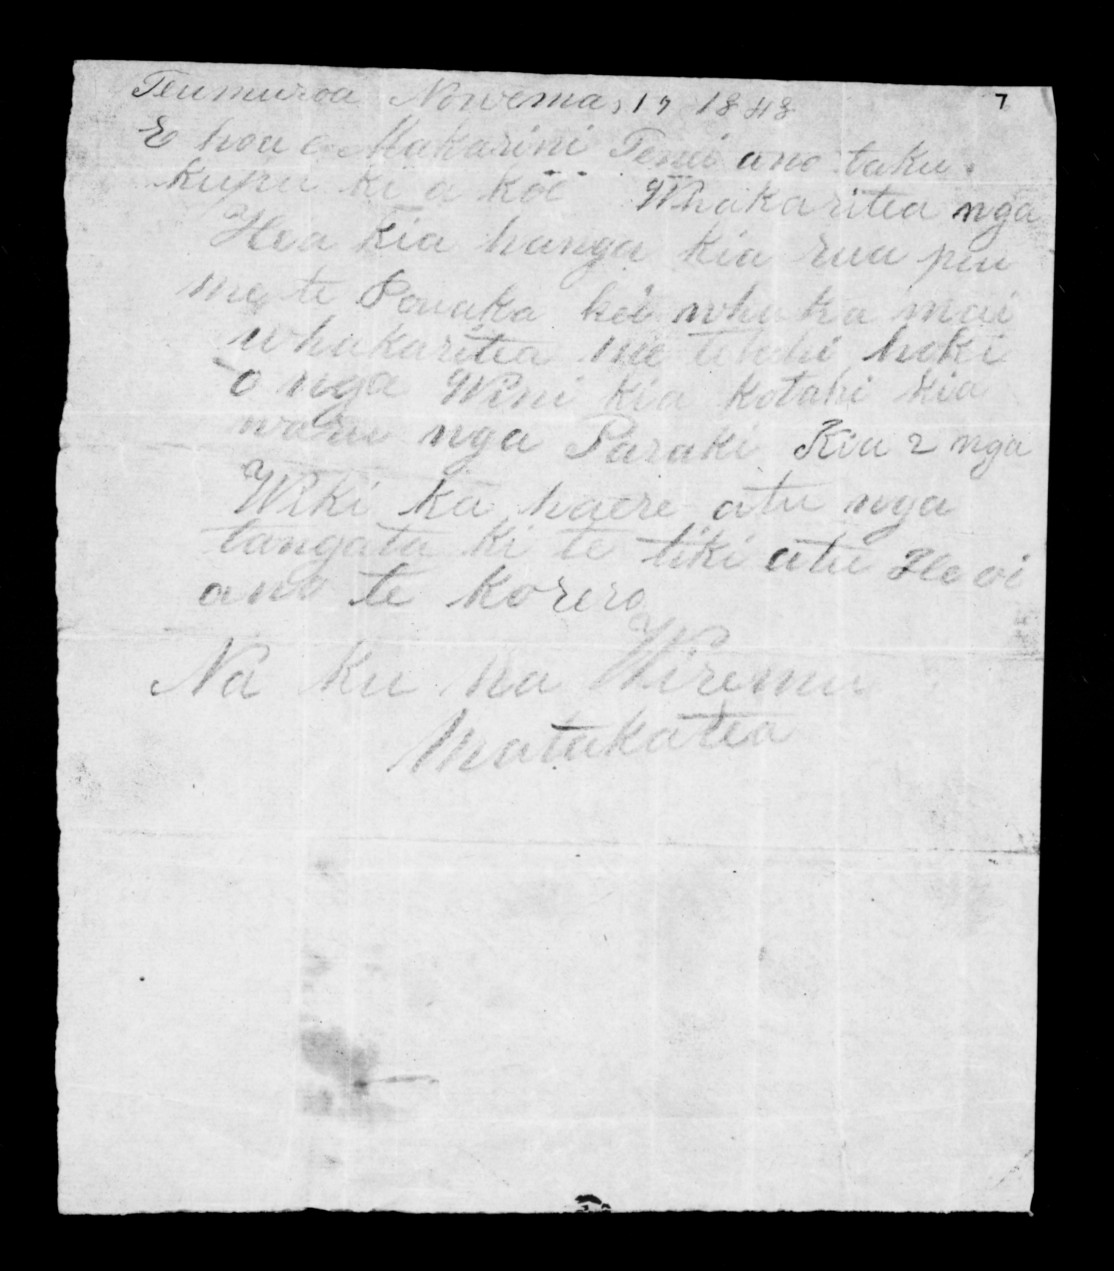 Teumuroa Nowema, 17 1848 7
E hoa e Makarini Tenei ano taku
kupu ki a koe Whakaritea nga
Hea kia hanga kia rua pea
me te Pouaka kei whaka mai
whakaritea me tetehi hoki
o nga Wini kia kotahi kia
waru nga Paraki Kia 2 nga
Wiki ka haere atu nga
tangata ki te tiki atu Heoi
ano te korero
Na ku na Wiremu
Matakatea